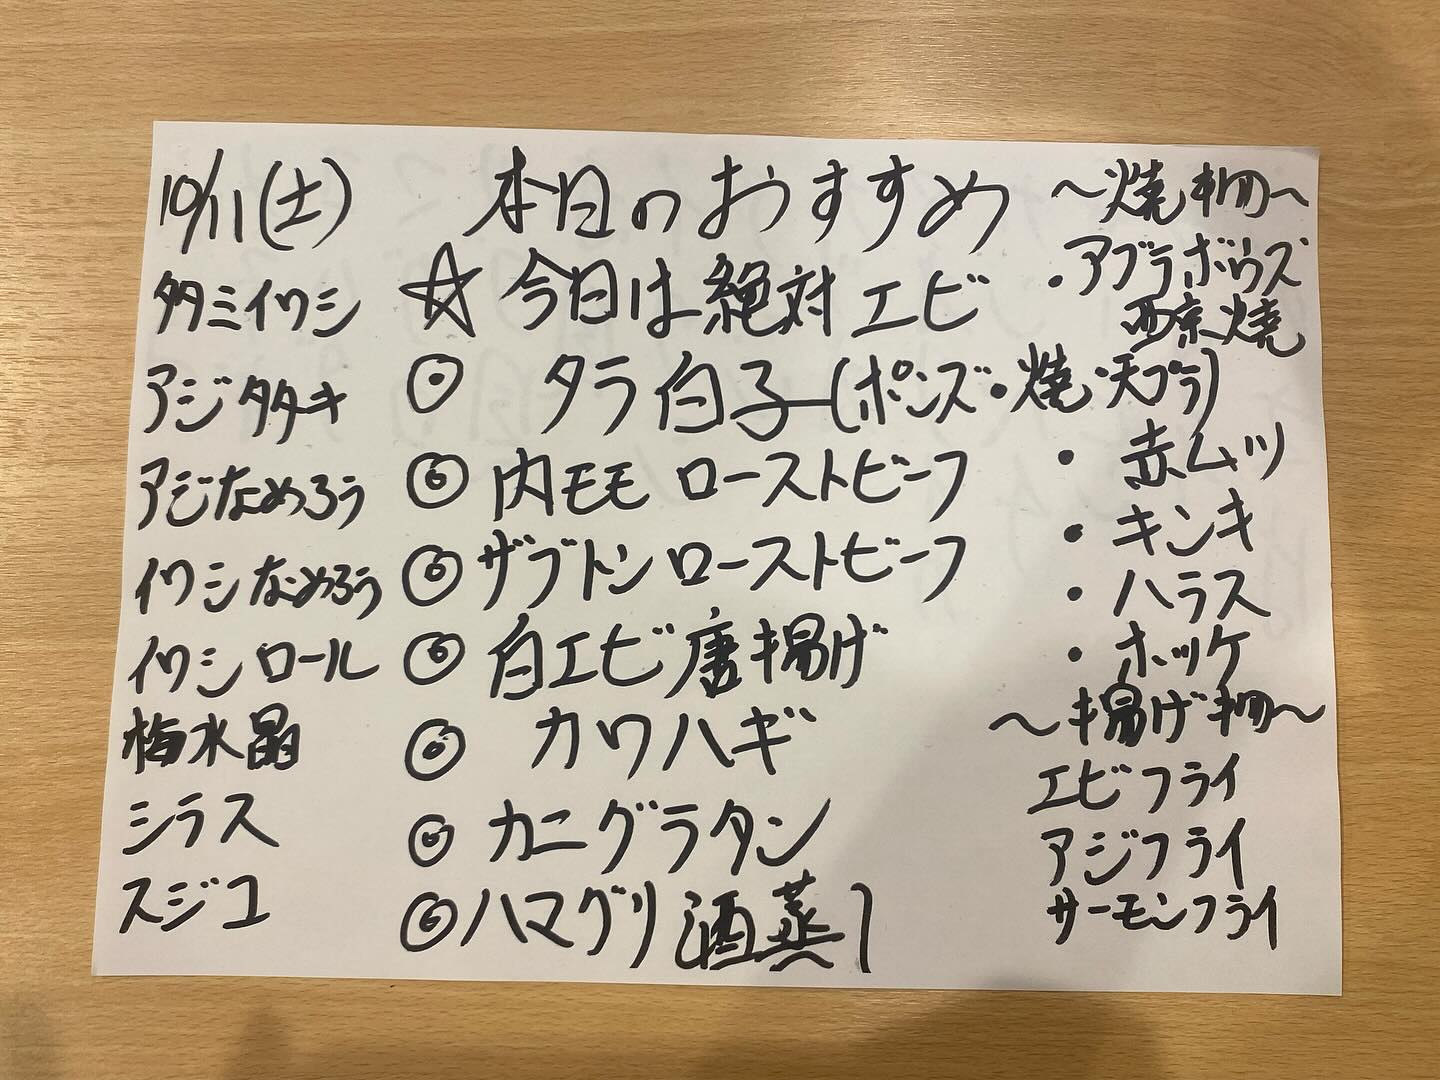 10/11(土)
タタミイワシ
アジタタキ
アジなめろう
イワシなめろう
イワシロール
梅水晶
シラス
スジコ
本日のおすすめ
☆今日は絶対エビ
◎ タラ白子(ポンズ・焼・天プラ)
◎内モモ ローストビーフ
◎ザブトンローストビーフ
◎白エビ唐揚げ
◎ カワハギ
◎カニグラタン
◎ハマグリ酒蒸し
〜焼物〜
・アブラボウズ
西京焼
・赤ムツ
・キンキ
・ハラス
・ホッケ
〜揚げ物〜
エビフライ
アジフライ
サーモンフライ